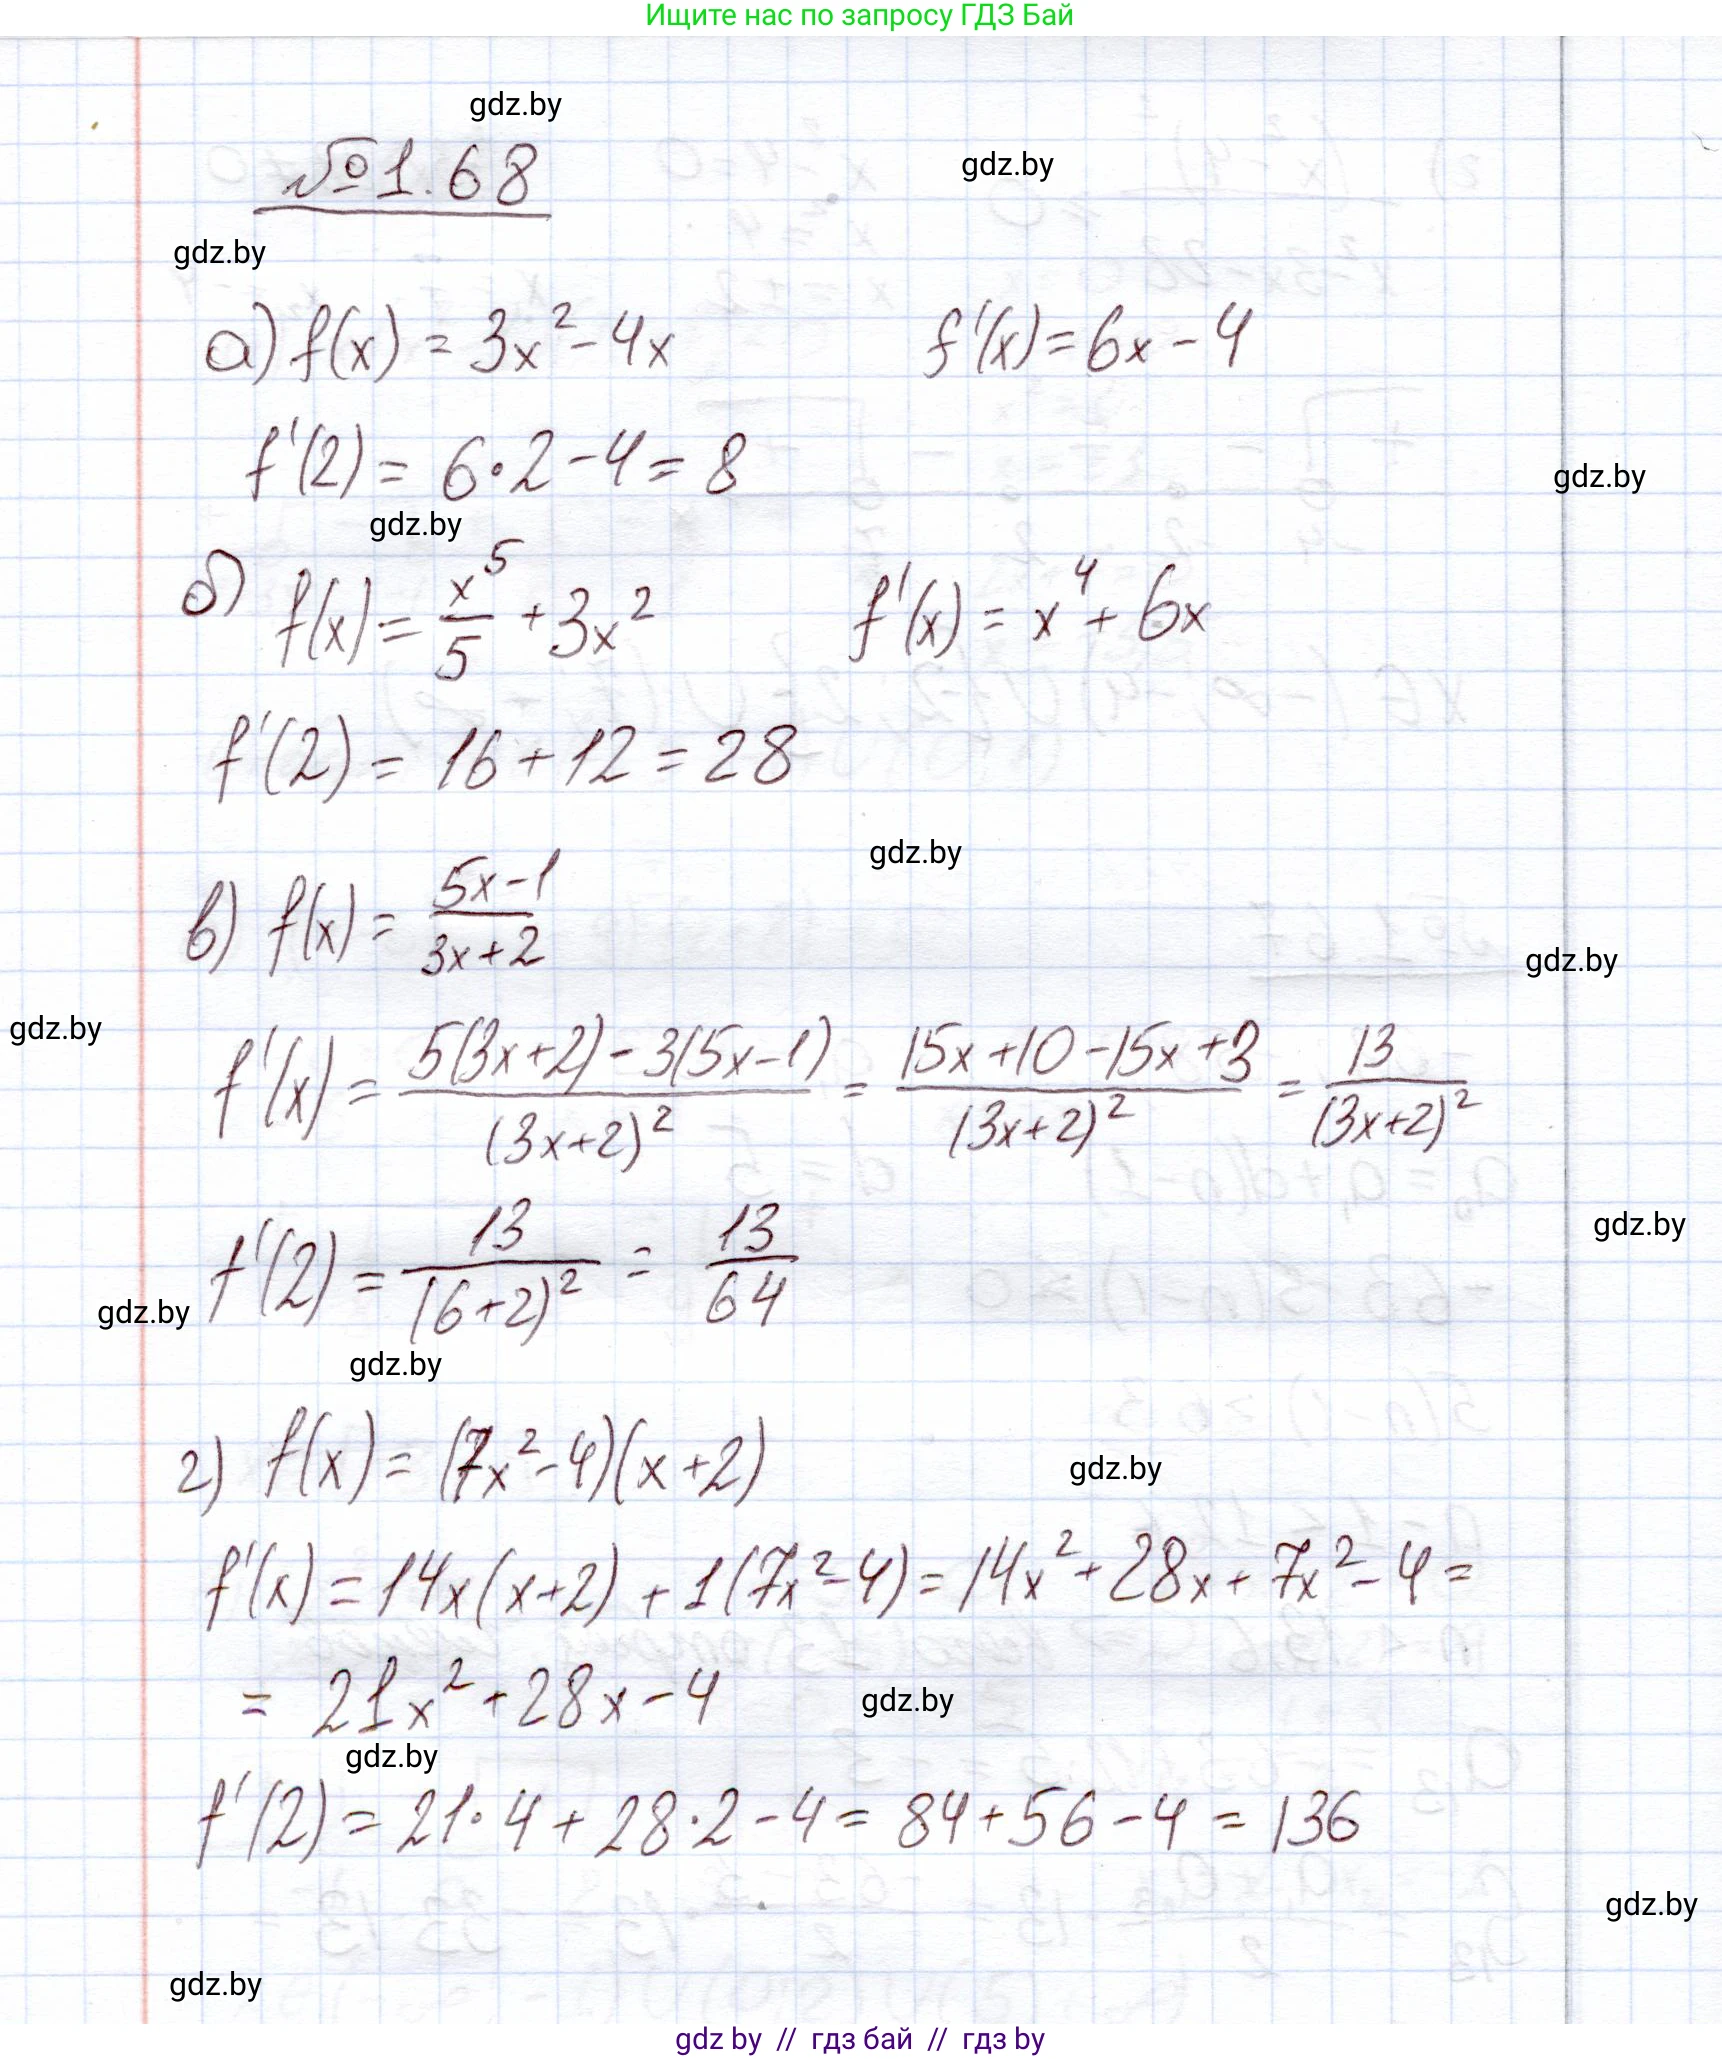 Ищите нас по запросу ГДЗ Бай
gdz.by
№1.68
gdz.by
gdz.by
а) f(x) = 3x² - 4x    f'(x) = 6x - 4
f'(2) = 6·2 - 4 = 8
gdz.by
gdz.by
б) f(x) = x⁵/5 + 3x²    f'(x) = x⁴ + 6x
f'(2) = 16 + 12 = 28
gdz.by
в) f(x) = (5x-1)/(3x+2)
gdz.by
gdz.by
f'(x) = (5(3x+2) - 3(5x-1))/(3x+2)² = (15x+10-15x+3)/(3x+2)² = 13/(3x+2)²
gdz.by
f'(2) = 13/(6+2)² = 13/64
gdz.by
gdz.by
г) f(x) = (7x²-4)(x+2)
gdz.by
f'(x) = 14x(x+2) + 1(7x²-4) = 14x² + 28x + 7x² - 4 =
= 21x² + 28x - 4
gdz.by
gdz.by
f'(2) = 21·4 + 28·2 - 4 = 84 + 56 - 4 = 136
gdz.by
gdz.by
gdz by // гдз бай // гдз by